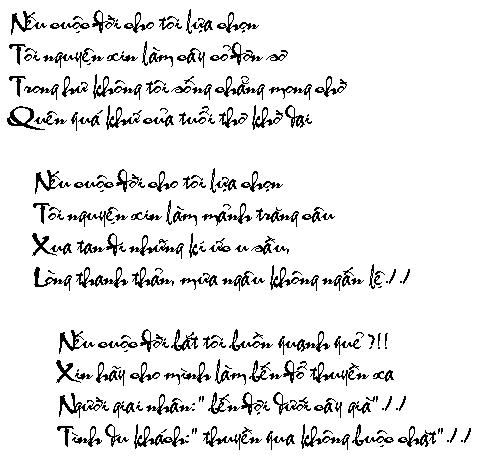 Nếu cuộc đời cho tôi lựa chọn
Tôi nguyện xin làm cây cỏ đơn sơ
Trong hư không tôi sống chẳng mong chờ
Quên quá khứ của tuổi thơ khờ dại
Nếu cuộc đời cho tôi lựa chọn
Tôi nguyện xin làm mảnh trăng câu
Xua tan đi những kí ức u sầu,
Lòng thanh thản, mưa ngâu không ngấn lệ././
Nếu cuộc đời bắt tôi buồn quanh quẻ ?!!
Xin hãy cho mình làm bến đổ thuyền xa
Người giai nhân:" bến đợi dưới cây già"././
Tình du khách:" thuyền qua không buộc chặt"././